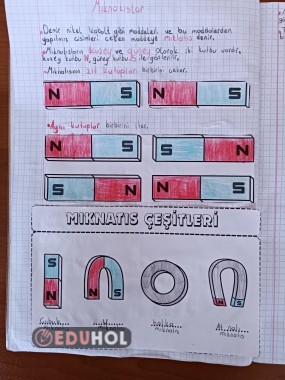 Mıknatıslar
Demir nikel kobalt gibi maddeleri ve bu maddelerden
yapılmış cisimleri çeken maddeye mıknatıs denir.
Mıknatısların kuzey ve güney olarak iki kutbu vardır.
kuzey kutbu N, güney kutbu S ile gösterilir.
Mıknatısın zıt kutupları birbirini çeker.
N S N S
Aynı kutuplar birbirini iter.
N S S N
S N N S
MIKNATIS ÇEŞİTLERİ
S
N
N S
N S
halka
At nalı
mıknatıs
mıknatıs
EDUHOL